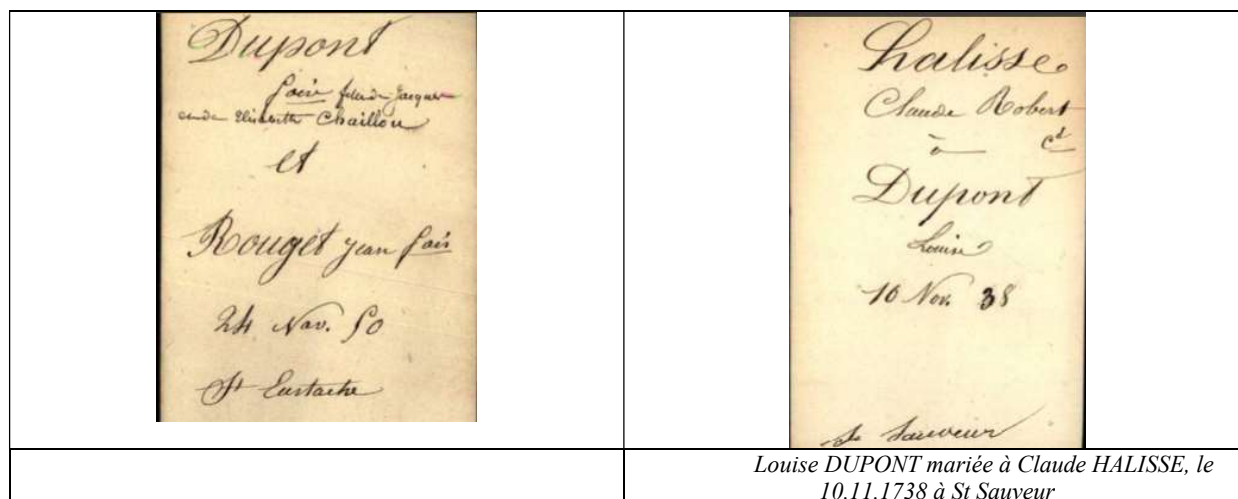 Dupont
fille de Jacques
Elisabeth Chaillou
et
Rouget Jean fois
24 Nov. 50
St Eustache
halisse
Claude Robert
à
Dupont
Louise
10 Nov. 38
St Sauveur
Louise DUPONT mariée à Claude HALISSE, le
10.11.1738 à St Sauveur